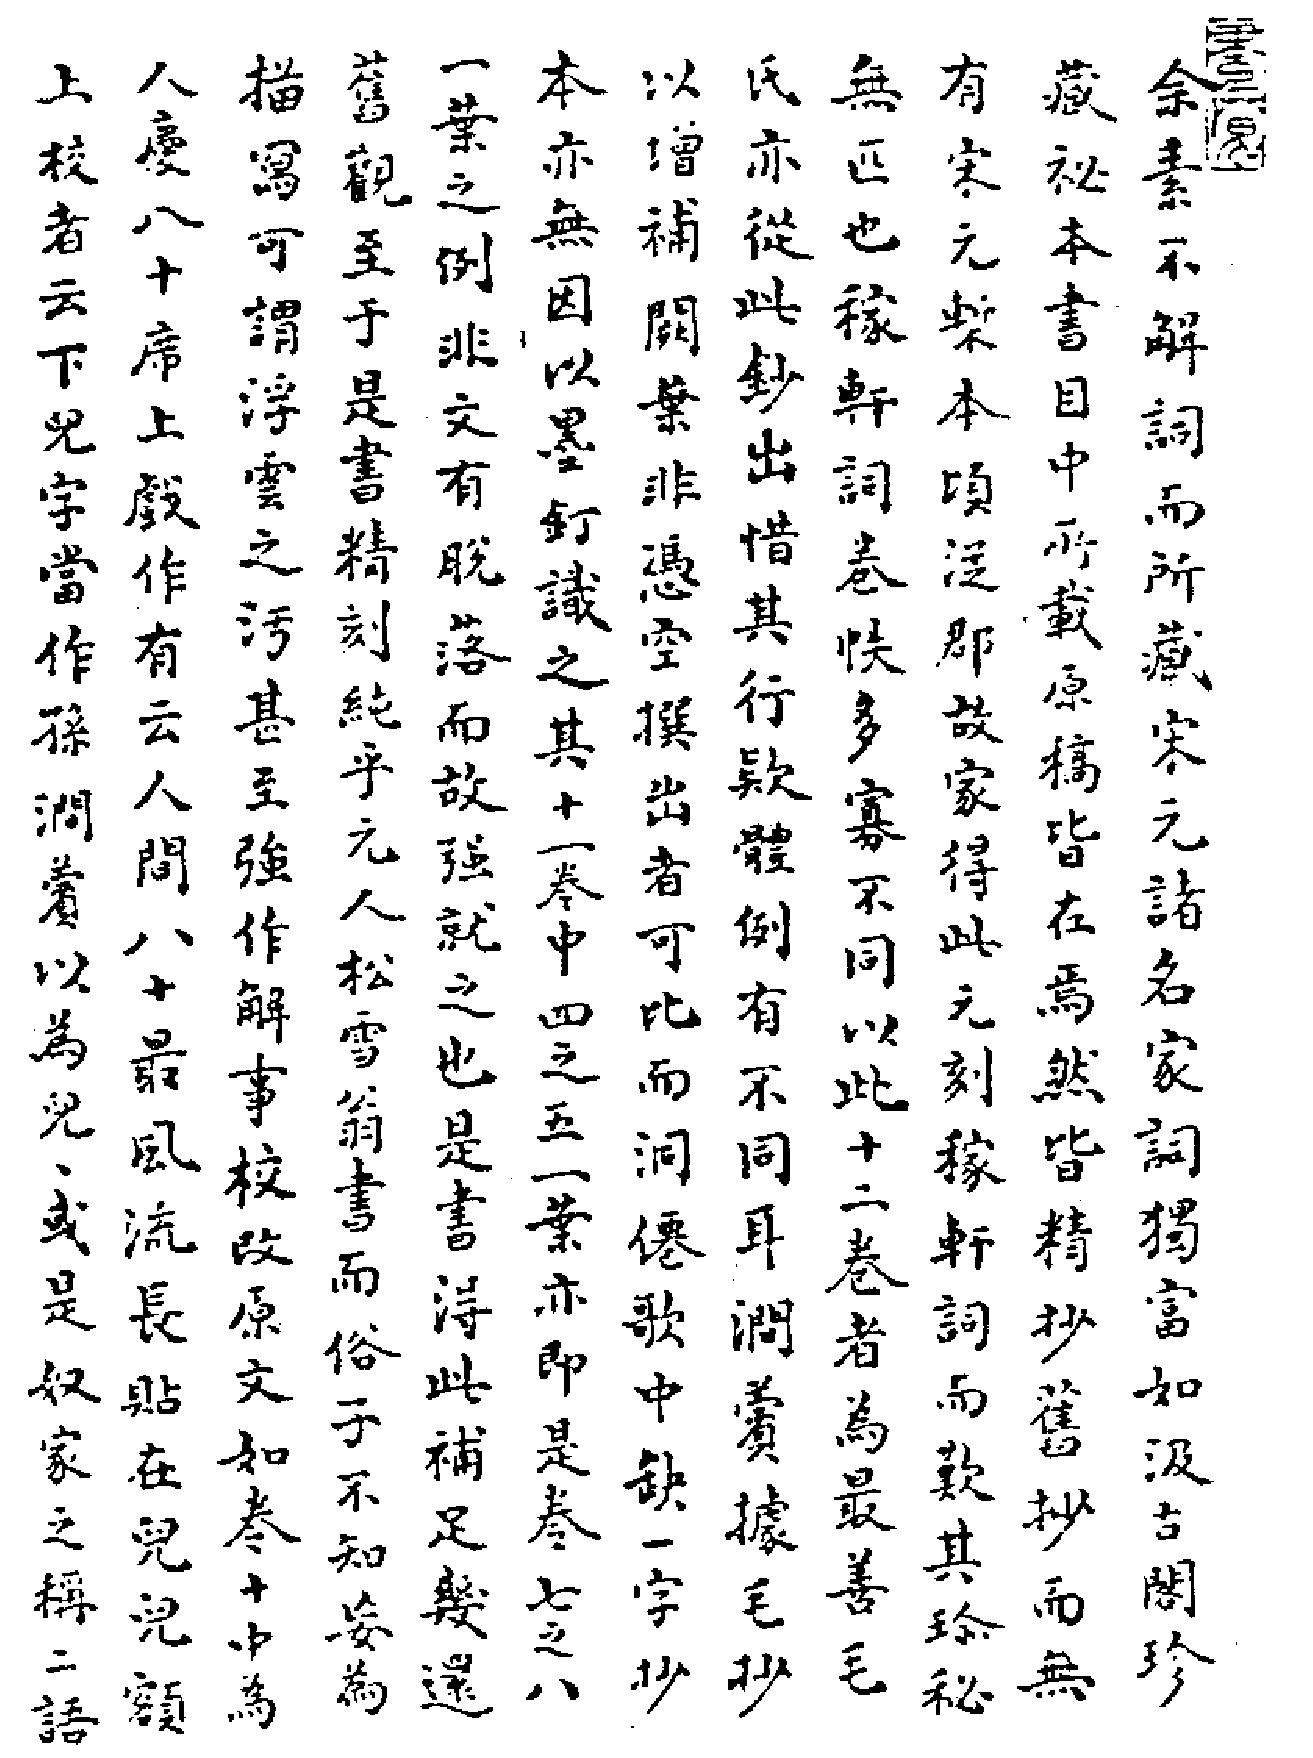 余素不解詞而所藏宋元諸名家詞獨富如汲古閣珍
藏祕本書目中所載原稿皆在焉然皆精抄舊抄而無
有宋元槧本頃从郡故家得此元刻稼軒詞而歎其珍秘
無匹也稼軒詞卷帙多寡不同以此十二卷者為最善毛
氏亦從此鈔出惜其行欵體例有不同耳澗薲據毛抄
以增補闕葉非憑空撰出者可比而洞僊歌中缺一字抄
本亦無因以墨釘識之其十一卷中四之五一葉亦即是卷七之八
一葉之例非文有脫落而故强就之也是書得此補足幾還
舊觀至于是書精刻純乎元人松雪翁書而俗于不知妄為
描寫可謂浮雲之污甚至強作解事校改原文如卷十中為
人慶八十席上戲作有云人間八十最風流長貼在兒兒額
上校者云下兒字當作孫澗薲以為兒、或是奴家之稱二語